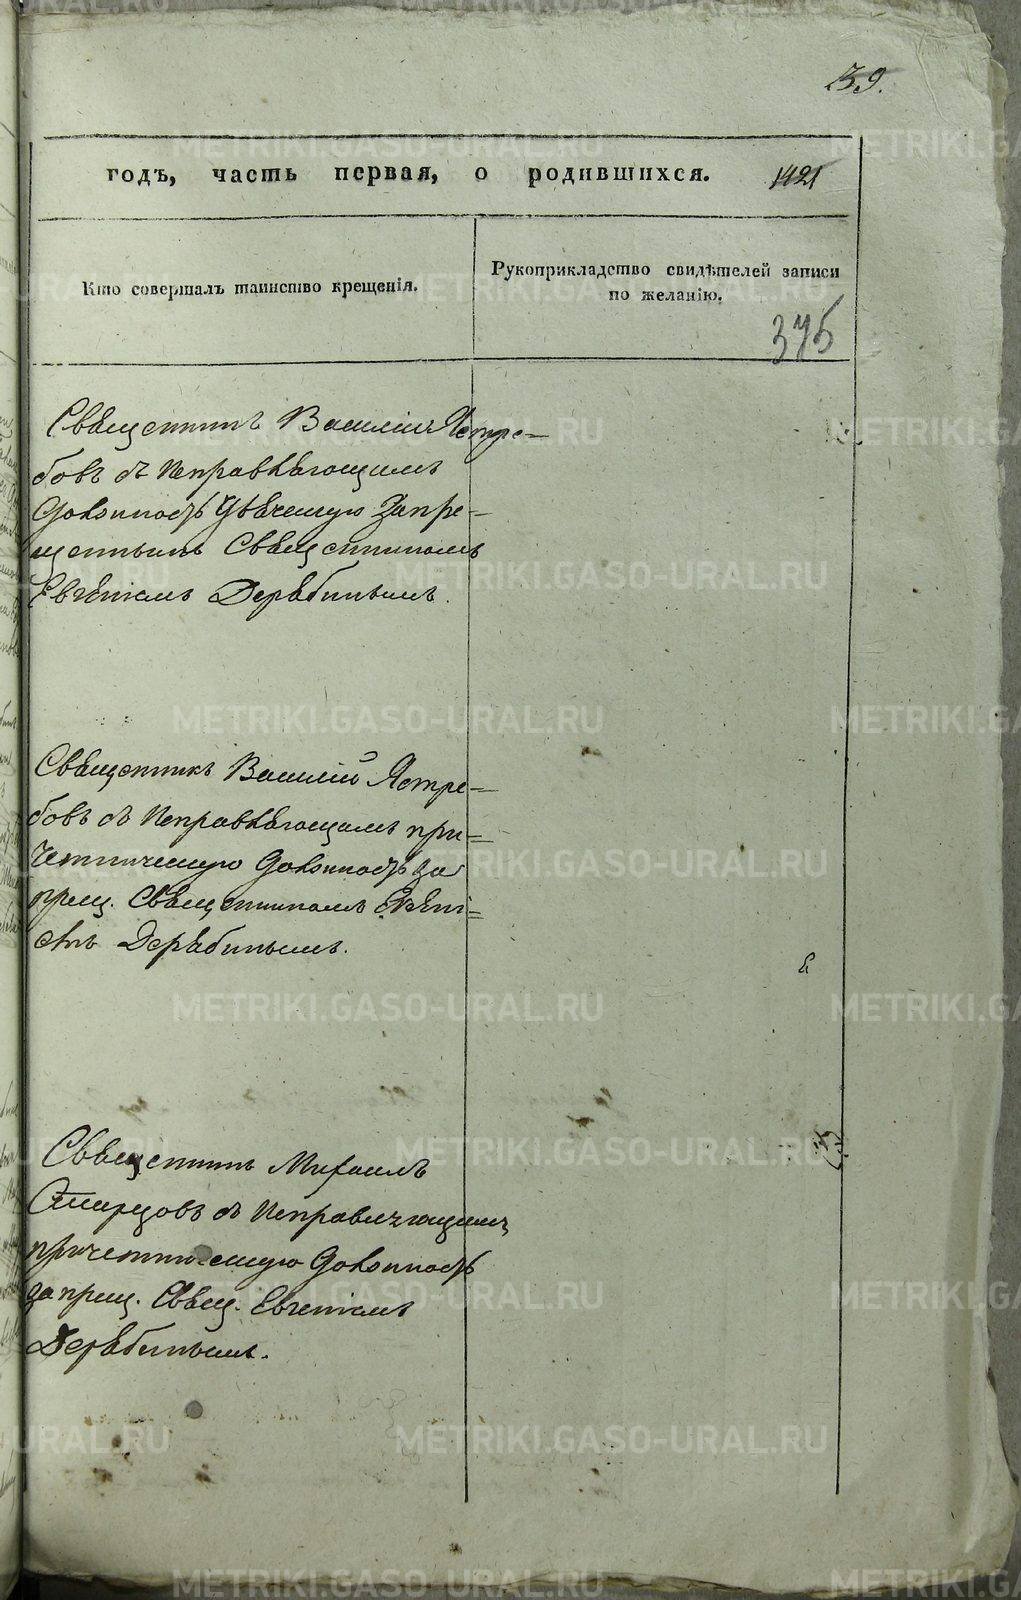 39.
годъ, часть первая, о родившихся.
Кто совершалъ таинство крещенія.
Рукоприкладство свидѣтелей записи
по желанію.
375
Священникъ Василій Ястре=
бовъ съ исправляющимъ
должность запре=
щеннымъ священникомъ
Евгеніемъ Дерябинымъ.
Священникъ Василій Ястре=
бовъ съ исправляющимъ при=
четническую должность за
прещ. священникомъ Евгені=
емъ Дерябинымъ.
Священникъ Михаилъ
съ исправляющимъ
причетническую должность
запрещ. свящ. Евгеніемъ
Дерябинымъ.
METRIKI.GASO-URAL.RU